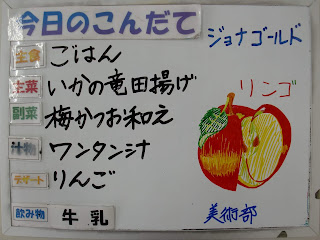 今日のこんだて
主食 ごはん
主菜 いかの竜田揚げ
副菜 梅かつお和え
汁物 ワンタン汁
デザート りんご
飲み物 牛乳
ジョナゴールド
リンゴ
美術部